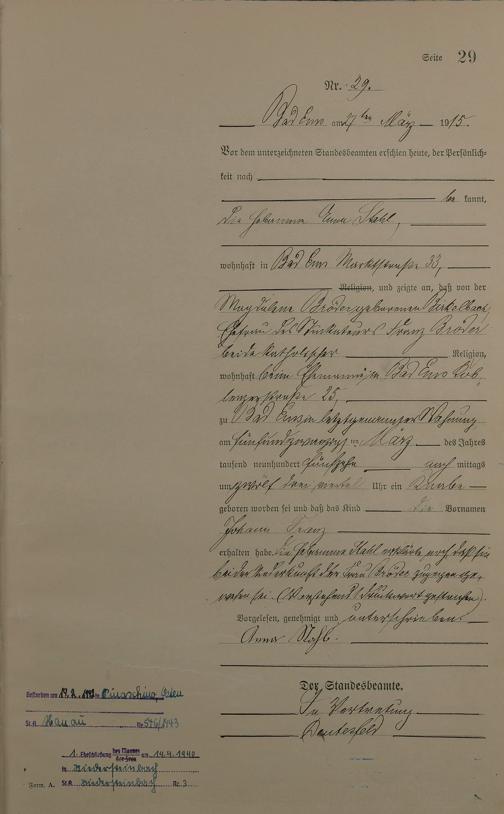 Seite 29
Nr. 29.
Bad Ems am 27ten März 1915.
Vor dem unterzeichneten Standesbeamten erschien heute, der Persönlich-
keit nach
be kannt,
die Hebamme Anna Stahl,
wohnhaft in Bad Ems Marktstraße 33,
Religion, und zeigte an, daß von der
Magdalene Bröder geborenen
Ehefrau des Stukateurs Franz Bröder
beide katholischer Religion,
wohnhaft beim Ehemanne in Bad Ems Kob-
lenzerstraße 25,
zu Bad Ems in letztgenannter Wohnung
am fünfundzwanzigsten März des Jahres
tausend neunhundert fünfzehn nach mittags
um zwölf drei viertel Uhr ein Knabe
geboren worden sei und daß das Kind die Vornamen
Johann Franz
erhalten habe. Die Hebamme Stahl erklärte noch daß sie
bei der Niederkunft der Frau Bröder zugegen ge-
wesen sei. (Vorstehend 1 Druckwort gestrichen).
Vorgelesen, genehmigt und unterschrieben
Anna Stahl.
Der Standesbeamte.
In Vertretung
Gestorben am
St.A. Hanau Nr. 576/1943
1. Eheschließung des Mannes am 14.4.1940
der Frau
in Niedersteinbach
Form. A. St.A. Niedersteinbach Nr. 3